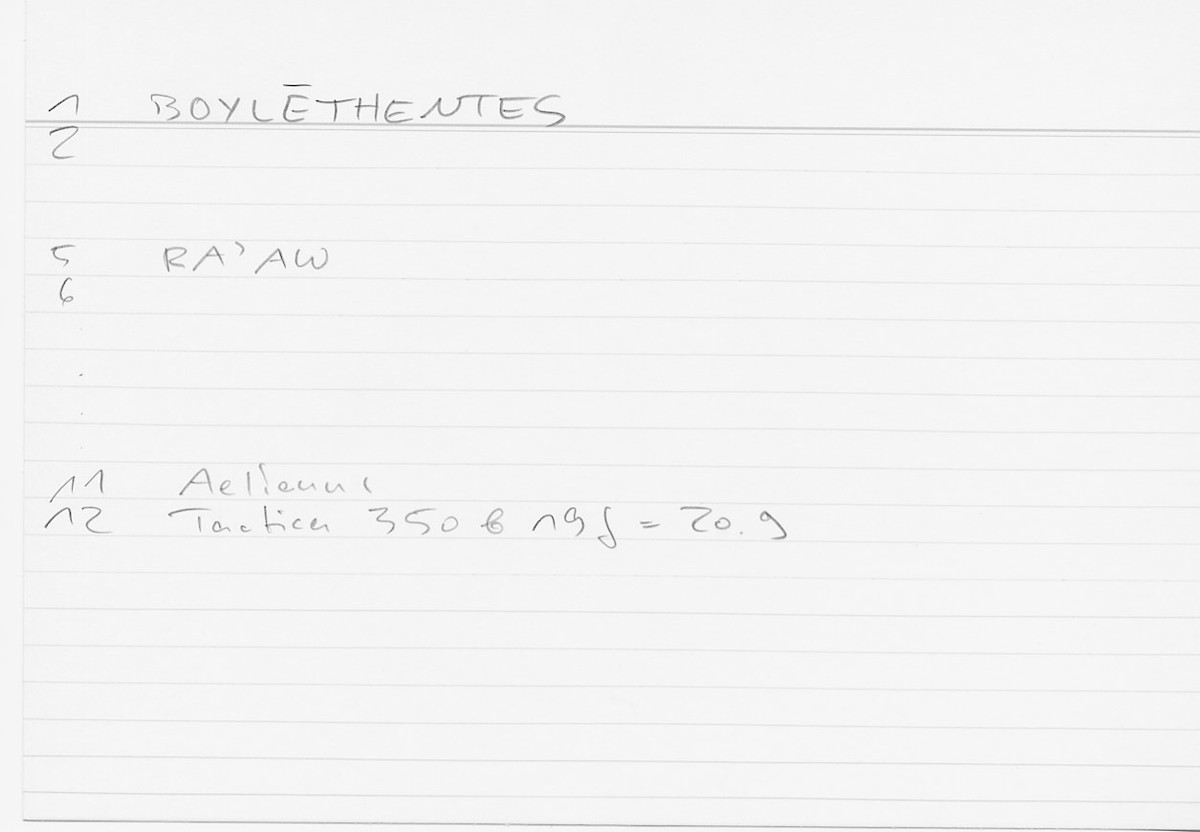 1 BOYLĒTHENTES
2
5 RA'AW
6
11 Aelianus
12 Tactica 350 b 19 f = 20.9